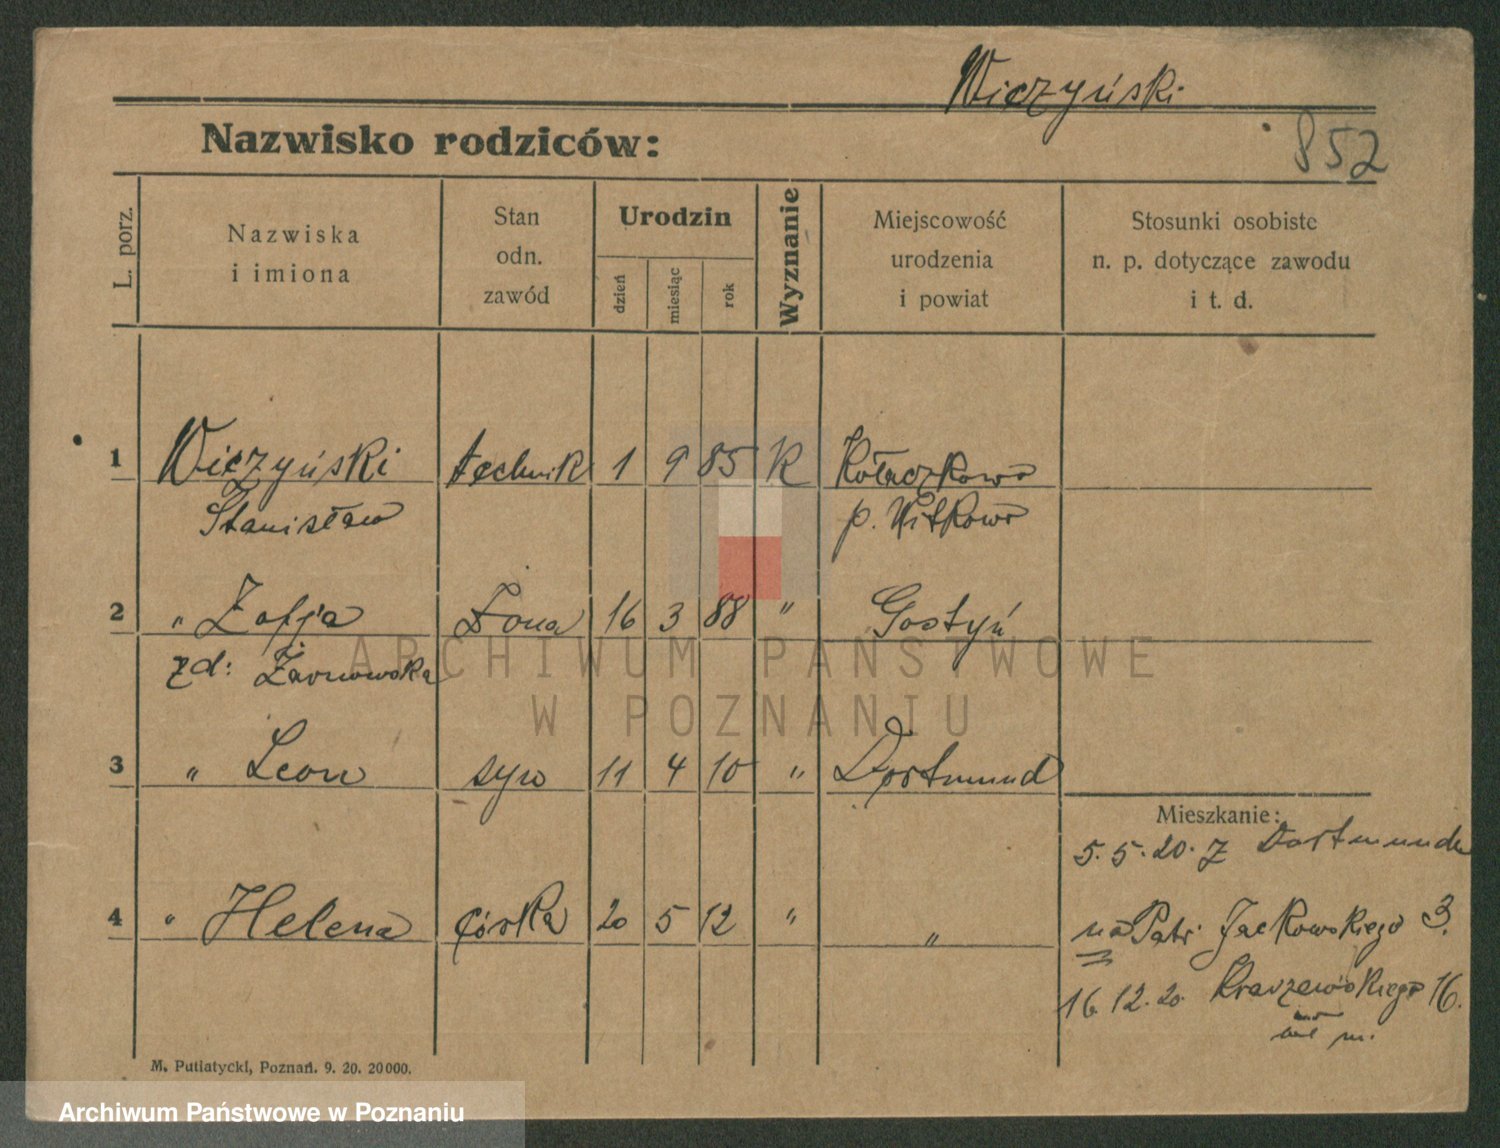 Wiczyński
Nazwisko rodziców:
852
L. porz.
Nazwiska
i imiona
Stan
odn.
zawód
Urodzin
dzień
miesiąc
rok
Wyznanie
Miejscowość
urodzenia
i powiat
Stosunki osobiste
n. p. dotyczące zawodu
i t. d.
1 Wiczyński technik 1 9 85 K Kołaczkowo
Stanisław p. Witkowo
2 " Zofja żona 16 3 88 " Gostyń
zd: Żarnowska
ARCHIWUM PAŃSTWOWE
W POZNANIU
3 " Leon syn 11 4 10 " Dortmund
Mieszkanie:
5.5.20. z Dortmundu
4 " Helena córka 20 5 12 " "
na Patr. Jackowskiego 3.
16.12.20. Kraszewskiego 16.
m.
M. Putiatycki, Poznań. 9. 20. 20000.
Archiwum Państwowe w Poznaniu